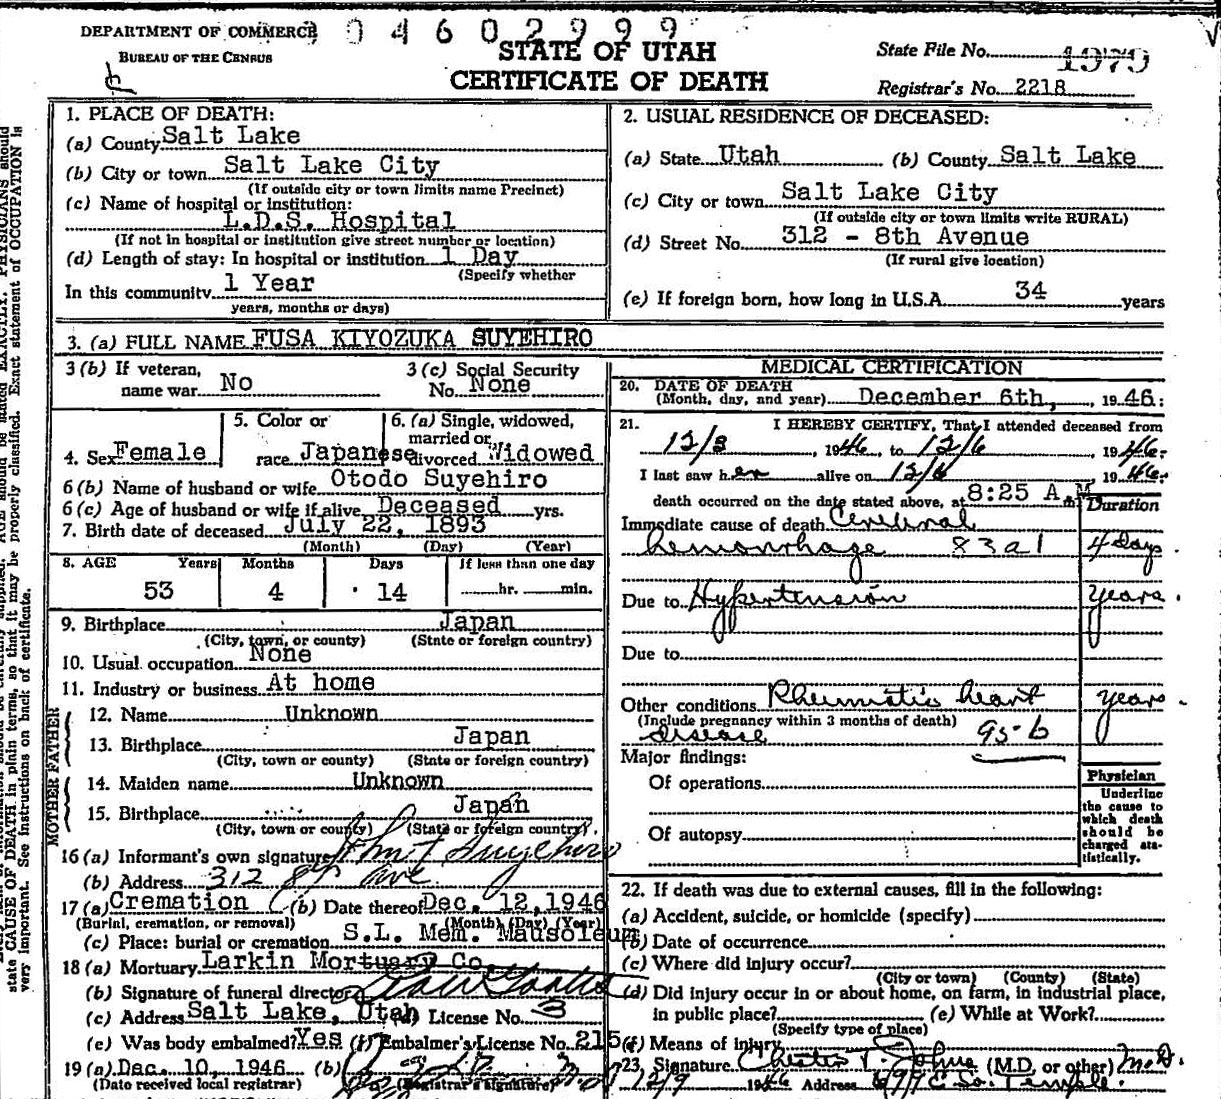 DEPARTMENT OF COMMERCE
BUREAU OF THE CENSUS
04602999
STATE OF UTAH
CERTIFICATE OF DEATH
State File No. 1979
Registrar's No. 2218
1. PLACE OF DEATH:
(a) County Salt Lake
(b) City or town Salt Lake City
(If outside city or town limits name Precinct)
(c) Name of hospital or institution:
L.D.S. Hospital
(If not in hospital or institution give street number or location)
(d) Length of stay: In hospital or institution 1 Day
(Specify whether
In this community 1 Year
years, months or days)
2. USUAL RESIDENCE OF DECEASED:
(a) State Utah (b) County Salt Lake
(c) City or town Salt Lake City
(If outside city or town limits write RURAL)
(d) Street No. 312 - 8th Avenue
(If rural give location)
(e) If foreign born, how long in U.S.A. 34 years
3. (a) FULL NAME FUSA KIYOZUKA SUYEHIRO
3 (b) If veteran,
name war No
3 (c) Social Security
No. None
4. Sex Female
5. Color or
race Japanese
6. (a) Single, widowed,
married or
divorced Widowed
6 (b) Name of husband or wife Otodo Suyehiro
6 (c) Age of husband or wife if alive Deceased yrs.
7. Birth date of deceased July 22, 1893
(Month) (Day) (Year)
8. AGE Years Months Days If less than one day
53 4 14 hr. min.
9. Birthplace Japan
(City, town, or county) (State or foreign country)
10. Usual occupation None
11. Industry or business At home
FATHER
12. Name Unknown
13. Birthplace Japan
(City, town or county) (State or foreign country)
MOTHER
14. Maiden name Unknown
15. Birthplace Japan
(City, town or county) (State or foreign country)
16 (a) Informant's own signature John T Suyehiro
(b) Address 312 8th ave
17 (a) Cremation (b) Date thereof Dec. 12, 1946
(Burial, cremation, or removal) (Month) (Day) (Year)
(c) Place: burial or cremation S.L. Mem. Mausoleum
18 (a) Mortuary Larkin Mortuary Co.
(b) Signature of funeral director
(c) Address Salt Lake, Utah (d) License No. 3
(e) Was body embalmed? Yes (f) Embalmer's License No. 215
19 (a) Dec. 10, 1946 (b)
(Date received local registrar) (Registrar's signature)
MEDICAL CERTIFICATION
20. DATE OF DEATH
(Month, day, and year) December 6th, 1946
21. I HEREBY CERTIFY, That I attended deceased from
12/3, 1946, to 12/6 1946.
I last saw her alive on 12/6 1946.
death occurred on the date stated above, at 8:25 A.M
Duration
Immediate cause of death Cerebral
hemorrhage 83a1 4 days
Due to Hypertension years
Due to
Other conditions Rheumatic heart years
(Include pregnancy within 3 months of death)
disease 95-b
Major findings:
Of operations
Of autopsy
Physician
Underline
the cause to
which death
should be
charged sta-
tistically.
22. If death was due to external causes, fill in the following:
(a) Accident, suicide, or homicide (specify)
(b) Date of occurrence
(c) Where did injury occur?
(City or town) (County) (State)
(d) Did injury occur in or about home, on farm, in industrial place,
in public place? (e) While at Work?
(Specify type of place)
(f) Means of injury
23. Signature Chester T. (M.D. or other) M.D.
12/9 1946 Address E. So. Temple.